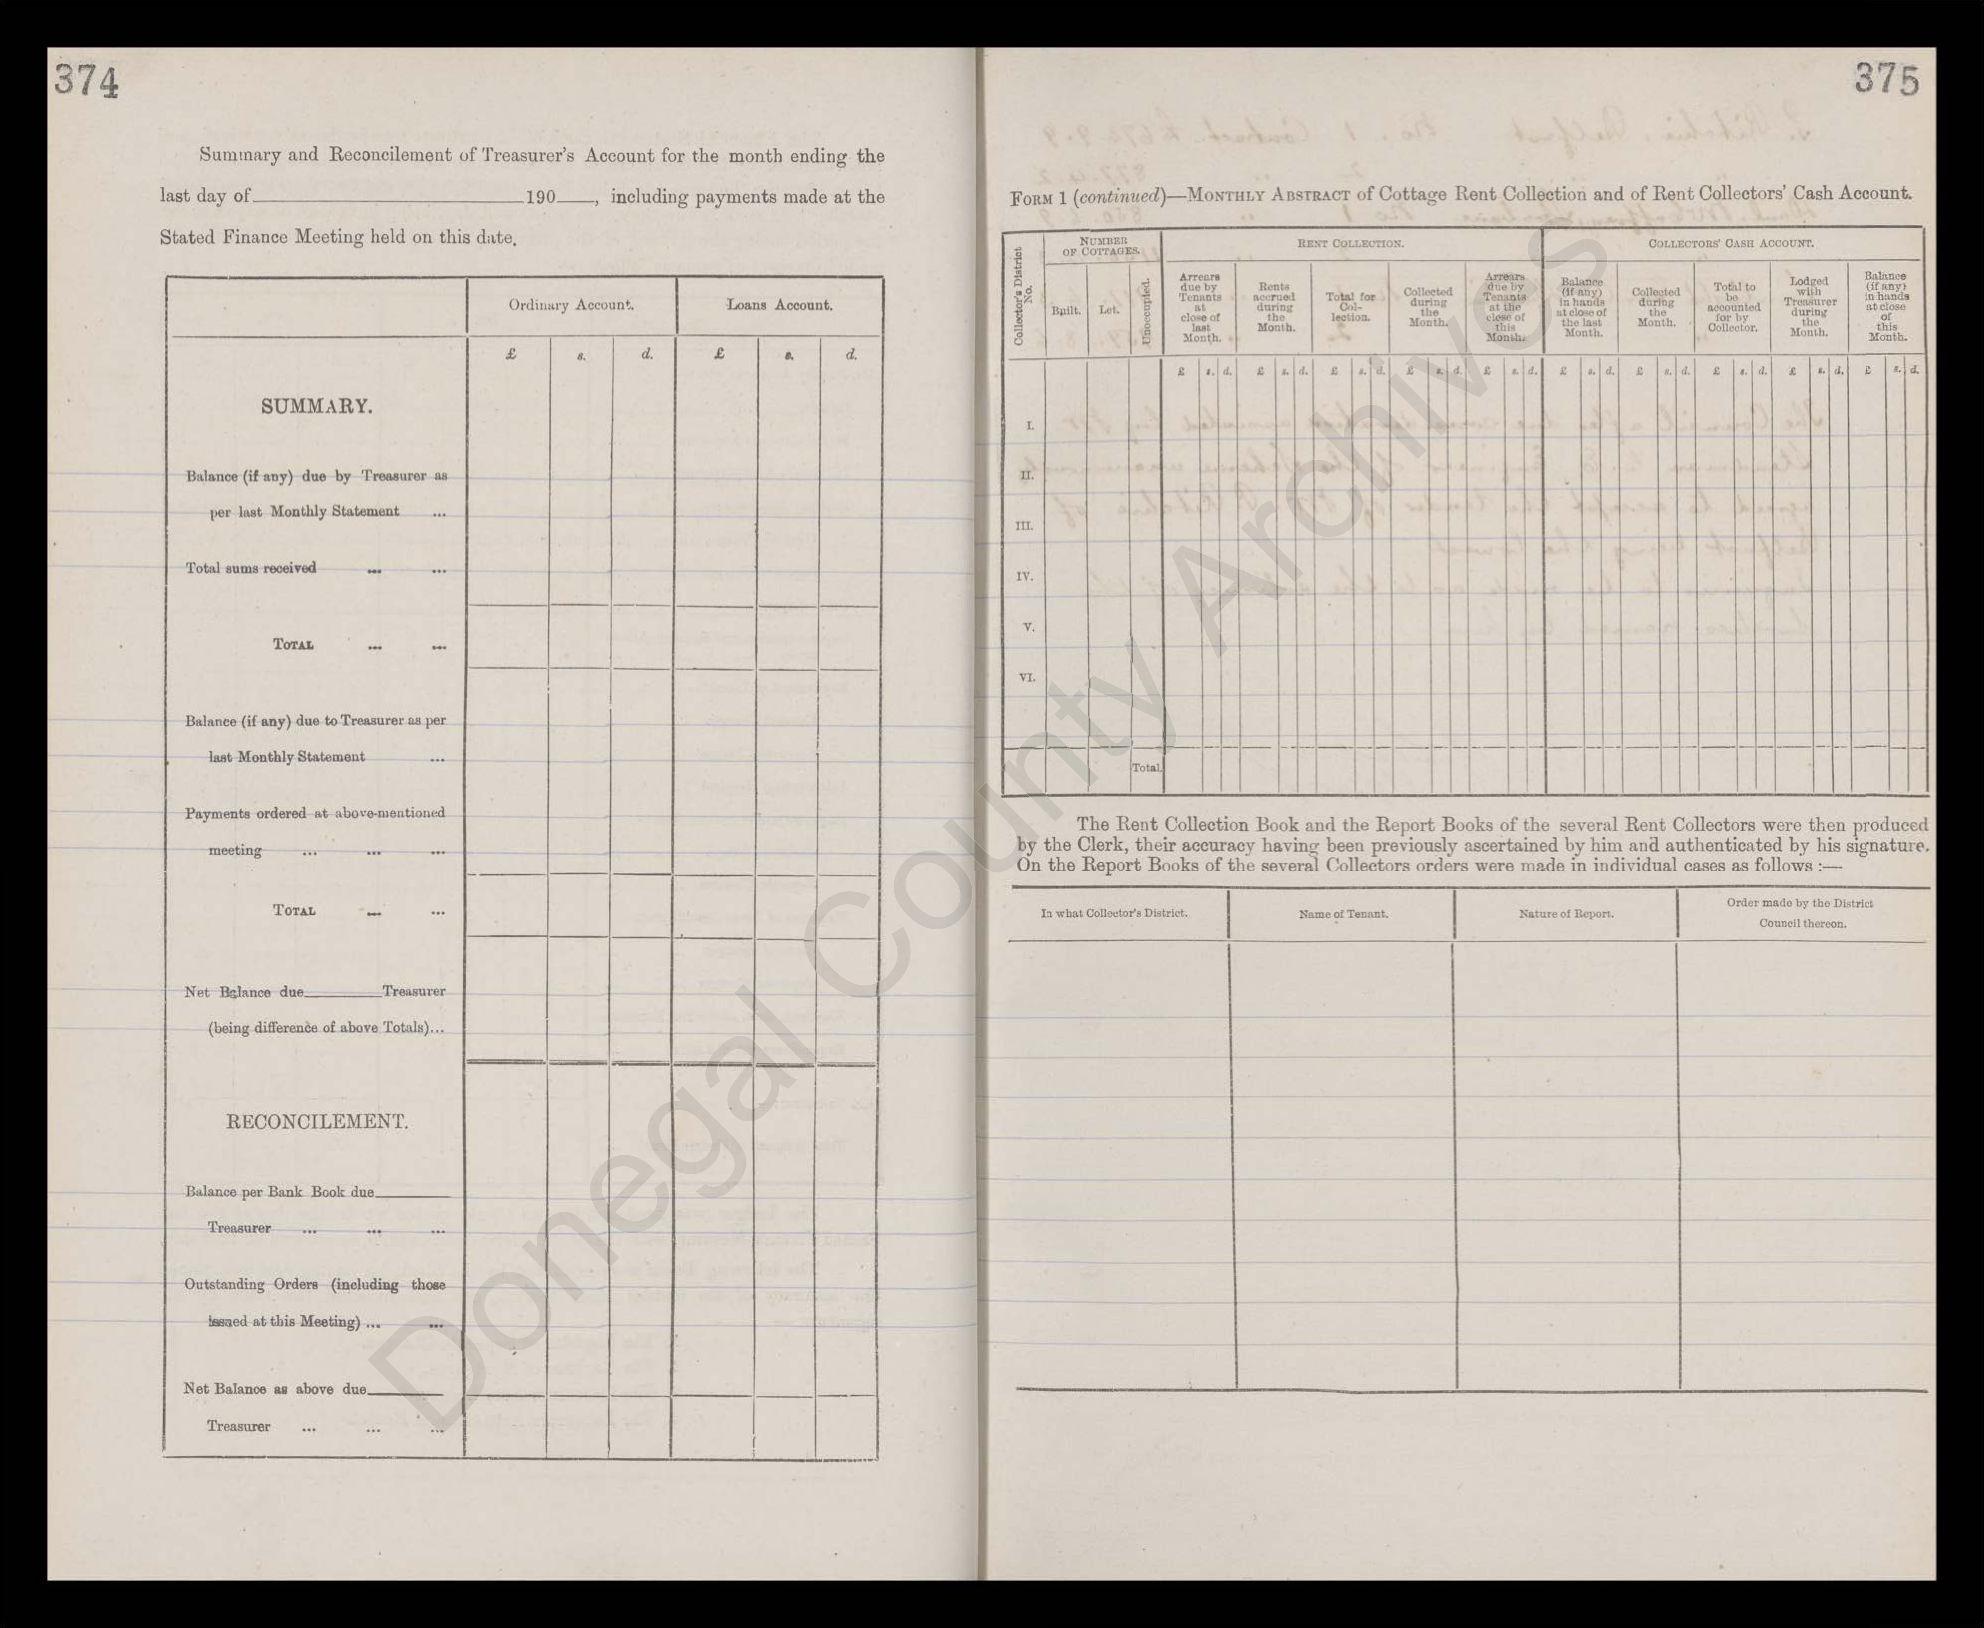 374
Summary and Reconcilement of Treasurer's Account for the month ending the
last day of 190 , including payments made at the
Stated Finance Meeting held on this date.
Ordinary Account. Loans Account.
£ s. d. £ s. d.
SUMMARY.
Balance (if any) due by Treasurer as
per last Monthly Statement ...
Total sums received ... ...
TOTAL ... ...
Balance (if any) due to Treasurer as per
last Monthly Statement ...
Payments ordered at above-mentioned
meeting ... ... ...
TOTAL ... ...
Net Balance due Treasurer
(being difference of above Totals)...
RECONCILEMENT.
Balance per Bank Book due
Treasurer ... ... ...
Outstanding Orders (including those
issued at this Meeting) ... ...
Net Balance as above due
Treasurer ... ... ...
375
FORM 1 (continued)—MONTHLY ABSTRACT of Cottage Rent Collection and of Rent Collectors' Cash Account.
Collector's District No.
NUMBER OF COTTAGES.
RENT COLLECTION.
COLLECTORS' CASH ACCOUNT.
Built.
Let.
Unoccupied.
Arrears due by Tenants at close of last Month.
Rents accrued during the Month.
Total for Collection.
Collected during the Month.
Arrears due by Tenants at the close of this Month.
Balance (if any) in hands at close of the last Month.
Collected during the Month.
Total to be accounted for by Collector.
Lodged with Treasurer during the Month.
Balance (if any) in hands at close of this Month.
£ s. d. £ s. d. £ s. d. £ s. d. £ s. d. £ s. d. £ s. d. £ s. d. £ s. d. £ s. d.
I.
II.
III.
IV.
V.
VI.
Total.
The Rent Collection Book and the Report Books of the several Rent Collectors were then produced
by the Clerk, their accuracy having been previously ascertained by him and authenticated by his signature.
On the Report Books of the several Collectors orders were made in individual cases as follows :—
In what Collector's District.
Name of Tenant.
Nature of Report.
Order made by the District
Council thereon.
Donegal County Archives